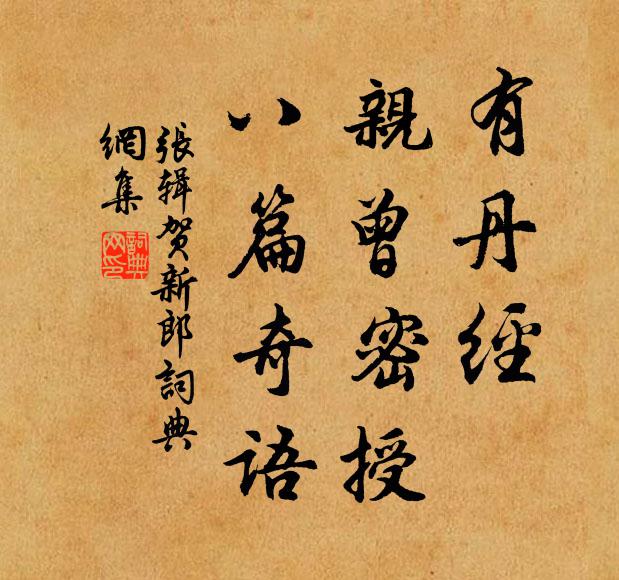 有丹經
親曾密授
八篇奇語
張辑贺新郎詞典
網集
詞典
网印